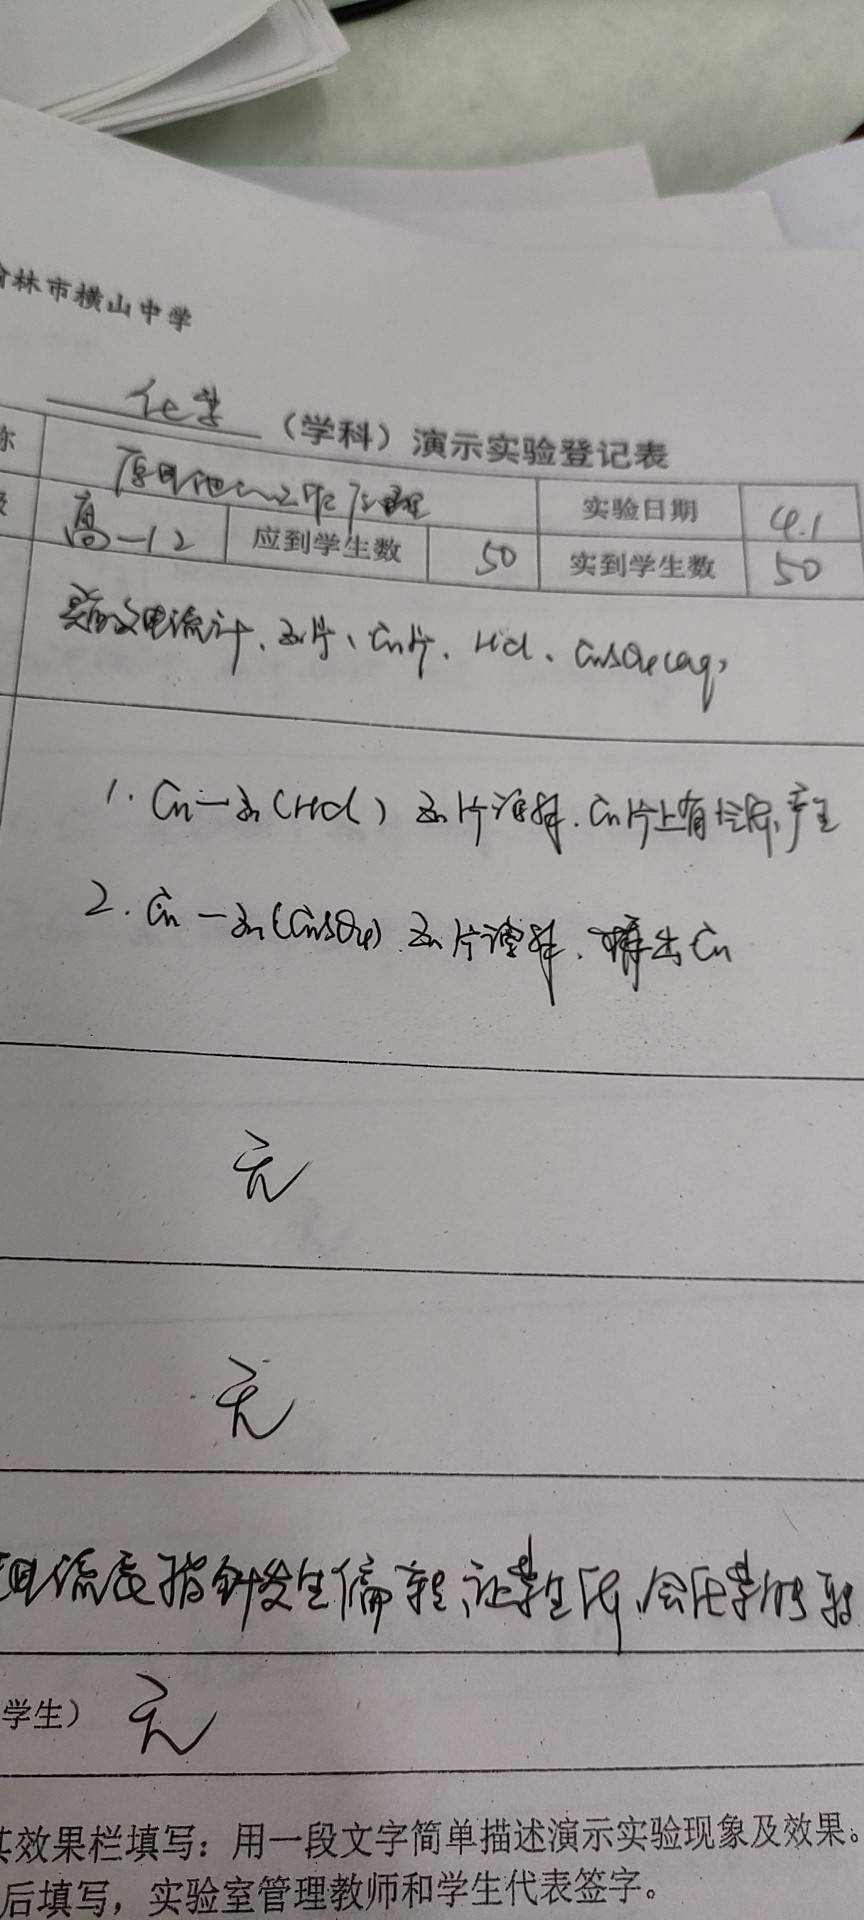 林市横山中学
化学（学科）演示实验登记表
称 原电池工作原理 实验日期 4.1
高一12 应到学生数 50 实到学生数 50
电流计、Zn片、Cu片、HCl、CuSO4(aq)
1. Cu—Zn(HCl) Zn片溶解.Cu片上有气泡产生
2. Cu—Zn(CuSO4) Zn片溶解.析出Cu
无
无
电流表指针发生偏转,让学生体会化学能转
学生） 无
其效果栏填写：用一段文字简单描述演示实验现象及效果。
后填写，实验室管理教师和学生代表签字。